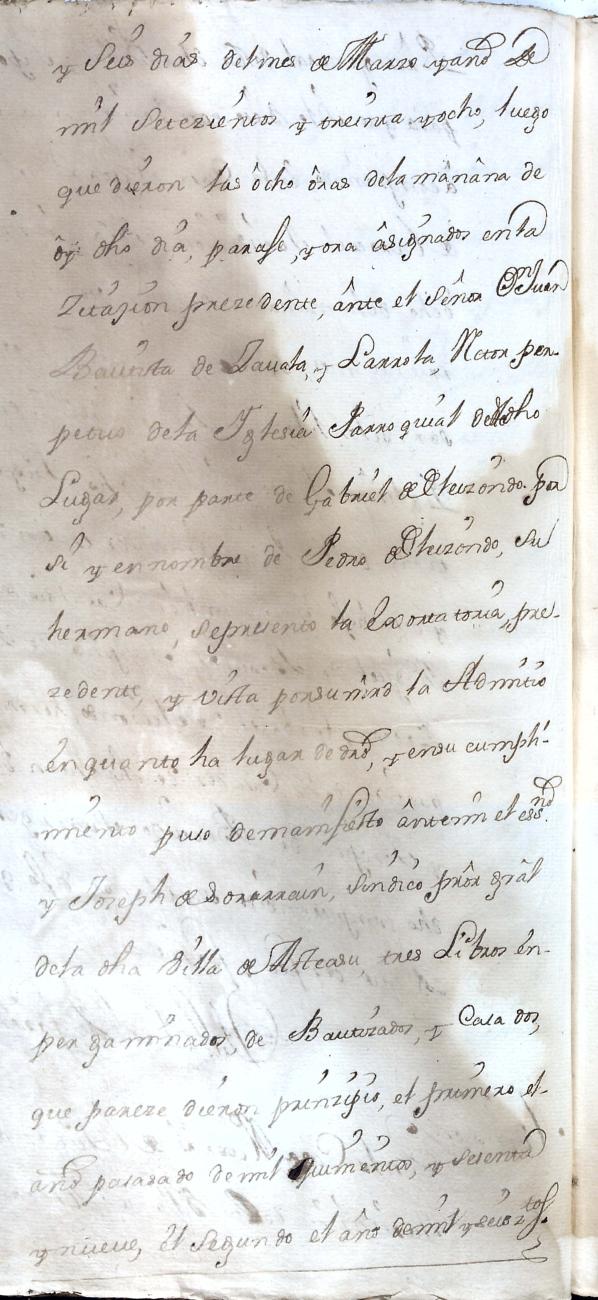 y Seis dias del mes de Marzo y año de
mil setezientos y treinta y ocho, luego
que dieron las ôcho ôras dela mañana de
ôy dho dia, paraje, y ora âsignados en la
Zitazion prezedente, ânte el Señor Dn Juan
Bautista de Zavala, y Larrola, Retor per-
petuo dela Yglesia Parroquial de dho
Lugar, por parte de Gabriel de Eleizondo por
si y en nombre de Pedro de Eleizondo, su
hermano, se presento la Exortatoria, pre-
zedente, y vista por su mrd la Admitio
en quanto ha lugar de dro, y en su cumpli-
miento puso de manifiesto ânte mi el essno
y Joseph de Sorarrain, sindico pror gral
dela dha Villa de Asteasu, tres Libros en-
pergaminados de Bautizados, y Casados,
que pareze dieron prinzipio, el primero el
año pasado de mil quinientos, y setenta
y nueve, el segundo el año de mil y seisztos